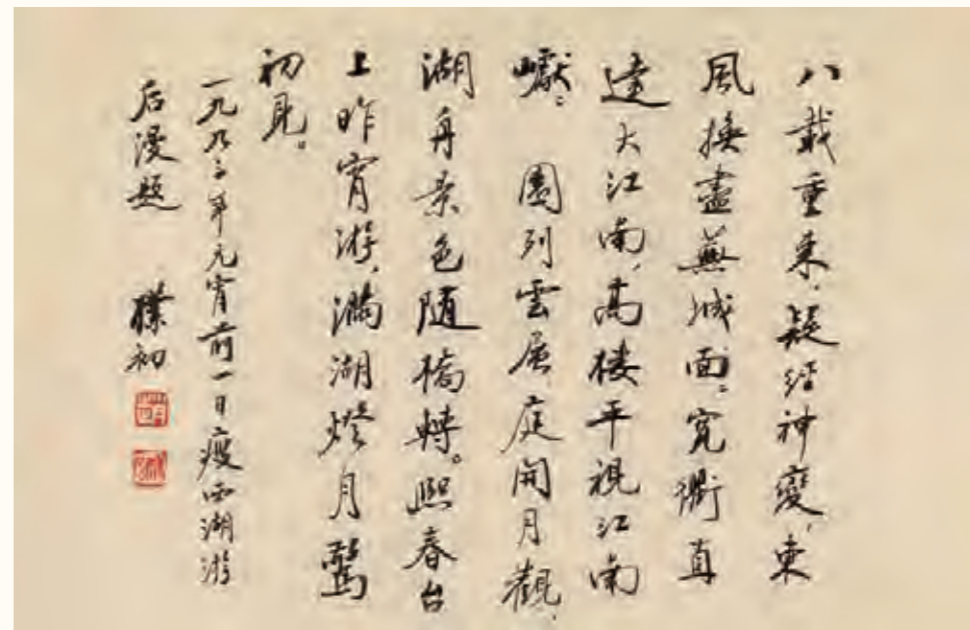 八載重来,疑经神變,東
風換盡蕪城面。寬衢直
達大江南,高楼平視江南
巘。園列雲 庭開月觀,
湖舟景色随橋轉。熙春台
上昨宵游,滿湖燈月驚
初見。
一九九三年元宵前一日瘦西湖游
后漫题 樸初